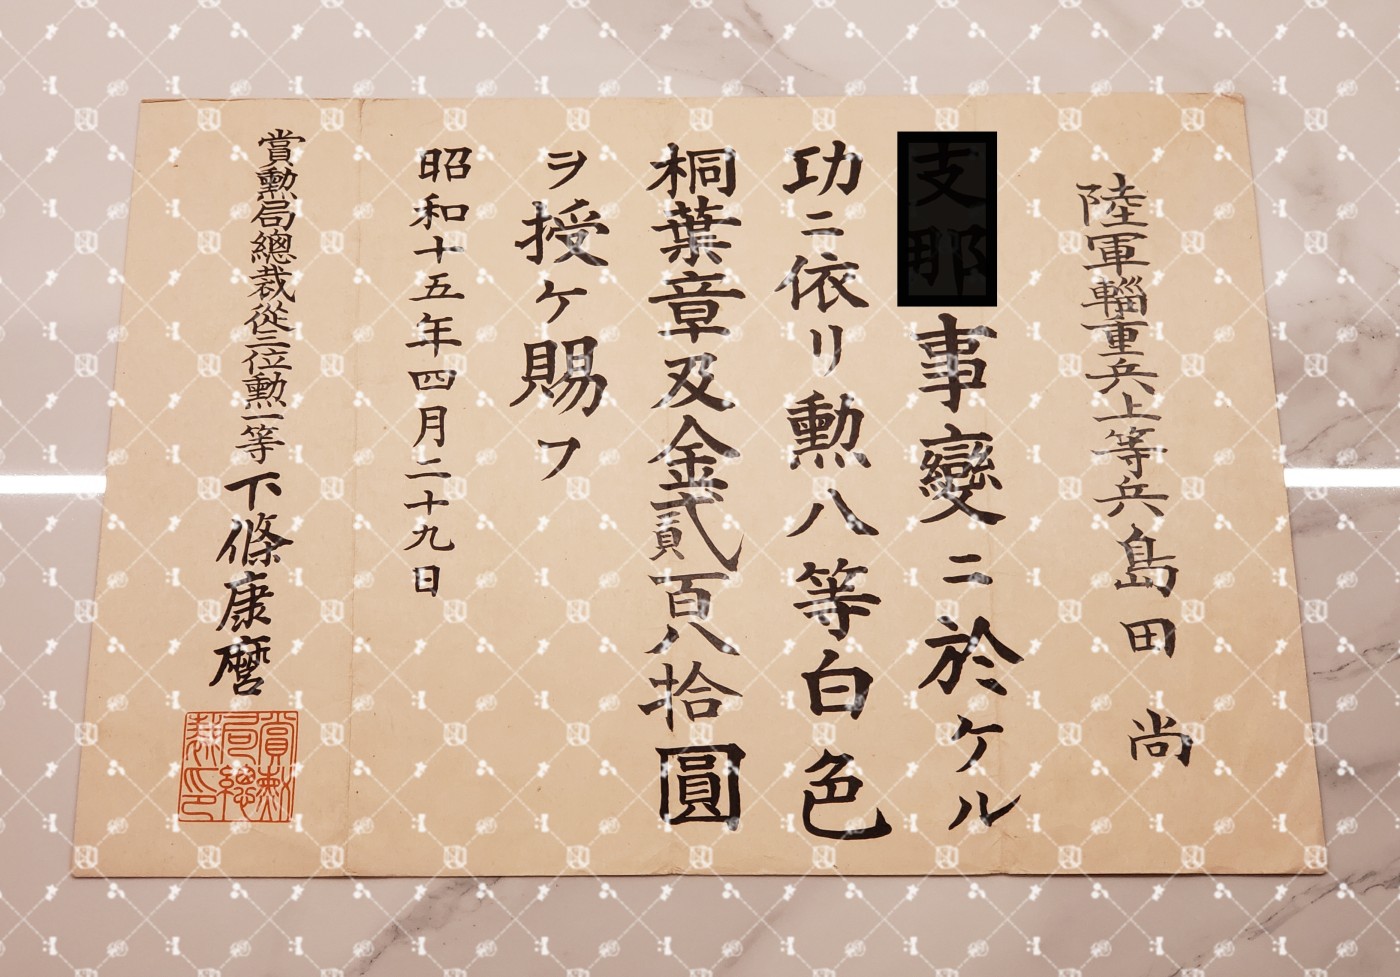 陸軍輜重兵上等兵島田尚
支那事變ニ於ケル
功ニ依リ勲八等白色
桐葉章及金貳百八拾圓
ヲ授ケ賜フ
昭和十五年四月二十九日
賞勲局總裁從三位勲一等下條康麿
賞勲局總裁印